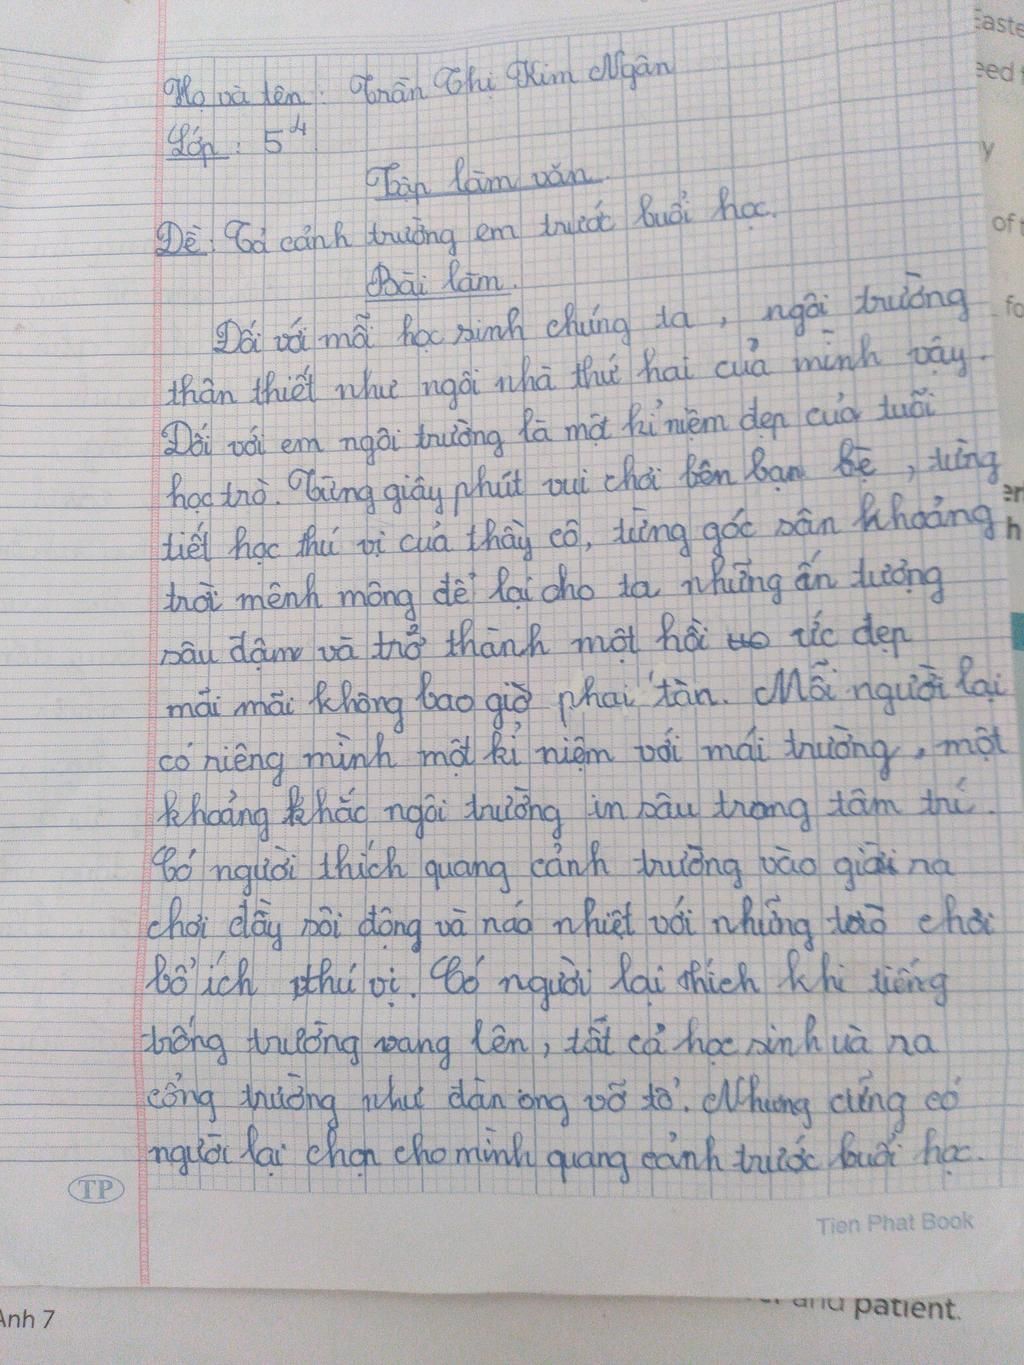 Họ và tên : Trần Thị Kim Ngân
Lớp : 5⁴
Tập làm văn
Đề : Tả cảnh trường em trước buổi học.
Bài làm.
Đối với mỗi học sinh chúng ta, ngôi trường
thân thiết như ngôi nhà thứ hai của mình vậy.
Đối với em ngôi trường là một kỉ niệm đẹp của tuổi
học trò. Từng giây phút vui chơi bên bạn bè, từng
tiết học thú vị của thầy cô, từng góc sân khoảng
trời mênh mông để lại cho ta những ấn tượng
sâu đậm và trở thành một hồi ức đẹp
mãi mãi không bao giờ phai tàn. Mỗi người lại
có riêng mình một kỉ niệm với mái trường, một
khoảng khắc ngôi trường in sâu trong tâm trí.
Có người thích quang cảnh trường vào giờ ra
chơi đầy sôi động và náo nhiệt với những trò chơi
bổ ích thú vị. Có người lại thích khi tiếng
trống trường vang lên, tất cả học sinh ùa ra
cổng trường như đàn ong vỡ tổ. Nhưng cũng có
người lại chọn cho mình quang cảnh trước buổi học.
TP
Tien Phat Book
Anh 7
and patient.
y
of t
fo
er
h